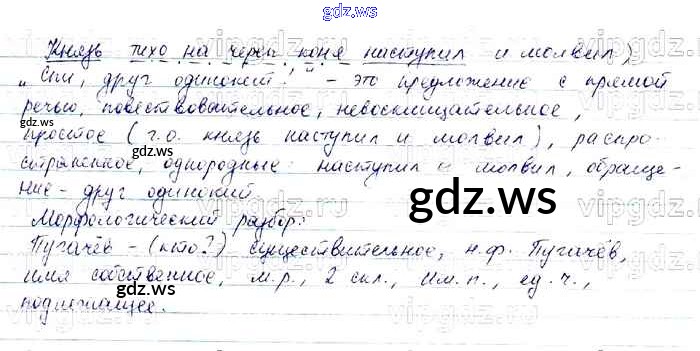 gdz.ws
Князь тихо на череп коня наступил и молвил:
„Спи, друг одинокий!" - это предложение с прямой
речью, повествовательное, невосклицательное,
gdz.ws
простое (г.о. князь наступил и молвил), распро-
страненное, однородные: наступил и молвил, обраще-
ние - друг одинокий.
gdz.ws
Морфологический разбор:
Пугачёв - (кто?) существительное, н.ф. Пугачёв,
имя собственное, м.р., 2 скл., Им.п., ед.ч.,
gdz.ws
подлежащее.
vipgdz.ru